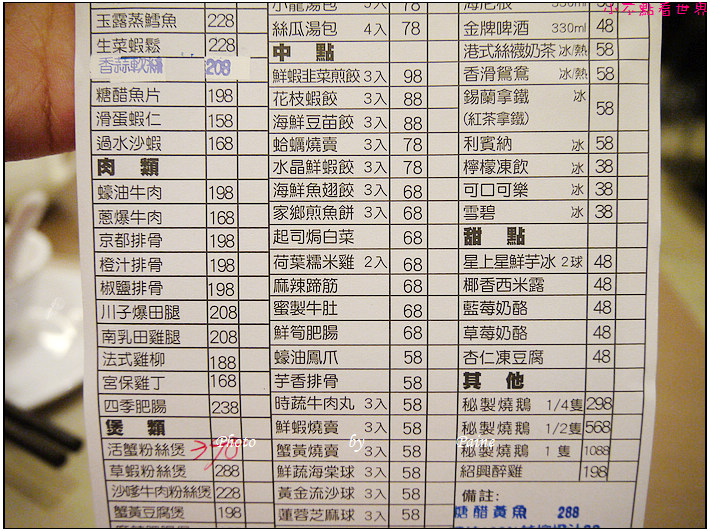 小不點看世界
玉露蒸鱈魚 228
生菜蝦鬆 228
香蒜軟絲 208
糖醋魚片 198
滑蛋蝦仁 158
過水沙蝦 168
肉 類
蠔油牛肉 198
蔥爆牛肉 168
京都排骨 198
橙汁排骨 198
椒鹽排骨 198
川子爆田腿 208
南乳田雞腿 208
法式雞柳 188
宮保雞丁 168
四季肥腸 238
煲 類
活蟹粉絲煲 390
草蝦粉絲煲 288
沙嗲牛肉粉絲煲 228
蟹黃豆腐煲 198
小籠湯包 3入 78
絲瓜湯包 4入 78
中 點
鮮蝦韭菜煎餃 3入 98
花枝蝦餃 3入 88
海鮮豆苗餃 3入 88
蛤蠣燒賣 3入 78
水晶鮮蝦餃 3入 78
海鮮魚翅餃 3入 68
家鄉煎魚餅 3入 68
起司焗白菜 68
荷葉糯米雞 2入 68
麻辣蹄筋 68
蜜製牛肚 68
鮮筍肥腸 68
蠔油鳳爪 58
芋香排骨 58
時蔬牛肉丸 3入 58
鮮蝦燒賣 3入 58
蟹黃燒賣 3入 58
鮮蔬海棠球 3入 58
黃金流沙球 3入 58
蓮蓉芝麻球 3入 58
海尼根 330ml
金牌啤酒 330ml 48
港式絲襪奶茶 冰/熱 58
香滑鴛鴦 冰/熱 58
錫蘭拿鐵 冰 58
(紅茶拿鐵)
利賓納 冰 58
檸檬凍飲 冰 38
可口可樂 冰 38
雪碧 冰 38
甜 點
星上星鮮芋冰 2球 48
椰香西米露 48
藍莓奶酪 48
草莓奶酪 48
杏仁凍豆腐 48
其 他
秘製燒鵝 1/4隻 298
秘製燒鵝 1/2隻 568
秘製燒鵝 1 隻 1088
紹興醉雞 198
備註:
糖醋黃魚 288
Photo by Paine